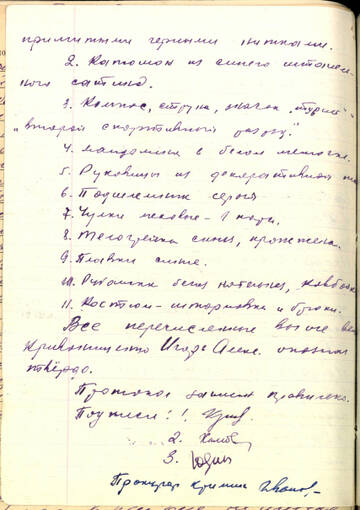 примитными черными нитками.
2. Капюшон из синего штапель-
ного сатина.
3. Компас, струна, значок "турист" и
"второй спортивный разряд".
4. мандолина в белом мешочке.
5. Руковицы из декоративной
6. Подшлемник серый
7. Чулки меховые - 1 пара.
8. Телогрейка синяя, прожжена.
9. Плавки синие.
10. Рубашка белая нательная, ковбойка
11. Костюм - штормовка и брюки.
Все перечисленные выше
Кривонищенко Игорь Алекс. опознал
твёрдо.
Протокол записан правильно.
Подписи: 1.
2.
3. Юдин
Прокурор кримин Иванов